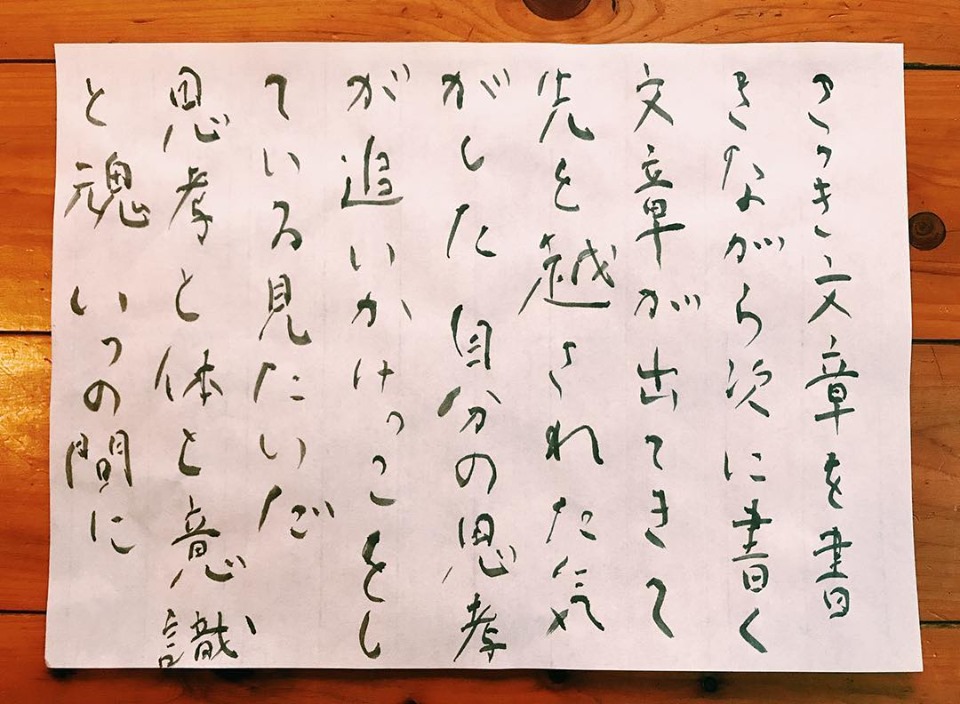 さっき文章を書
きながら次に書く
文章が出てきて
先を越された気
がした 自分の思考
が追いかけっこをし
ている見たいだ
思考と体と意識
と魂 いつの間に